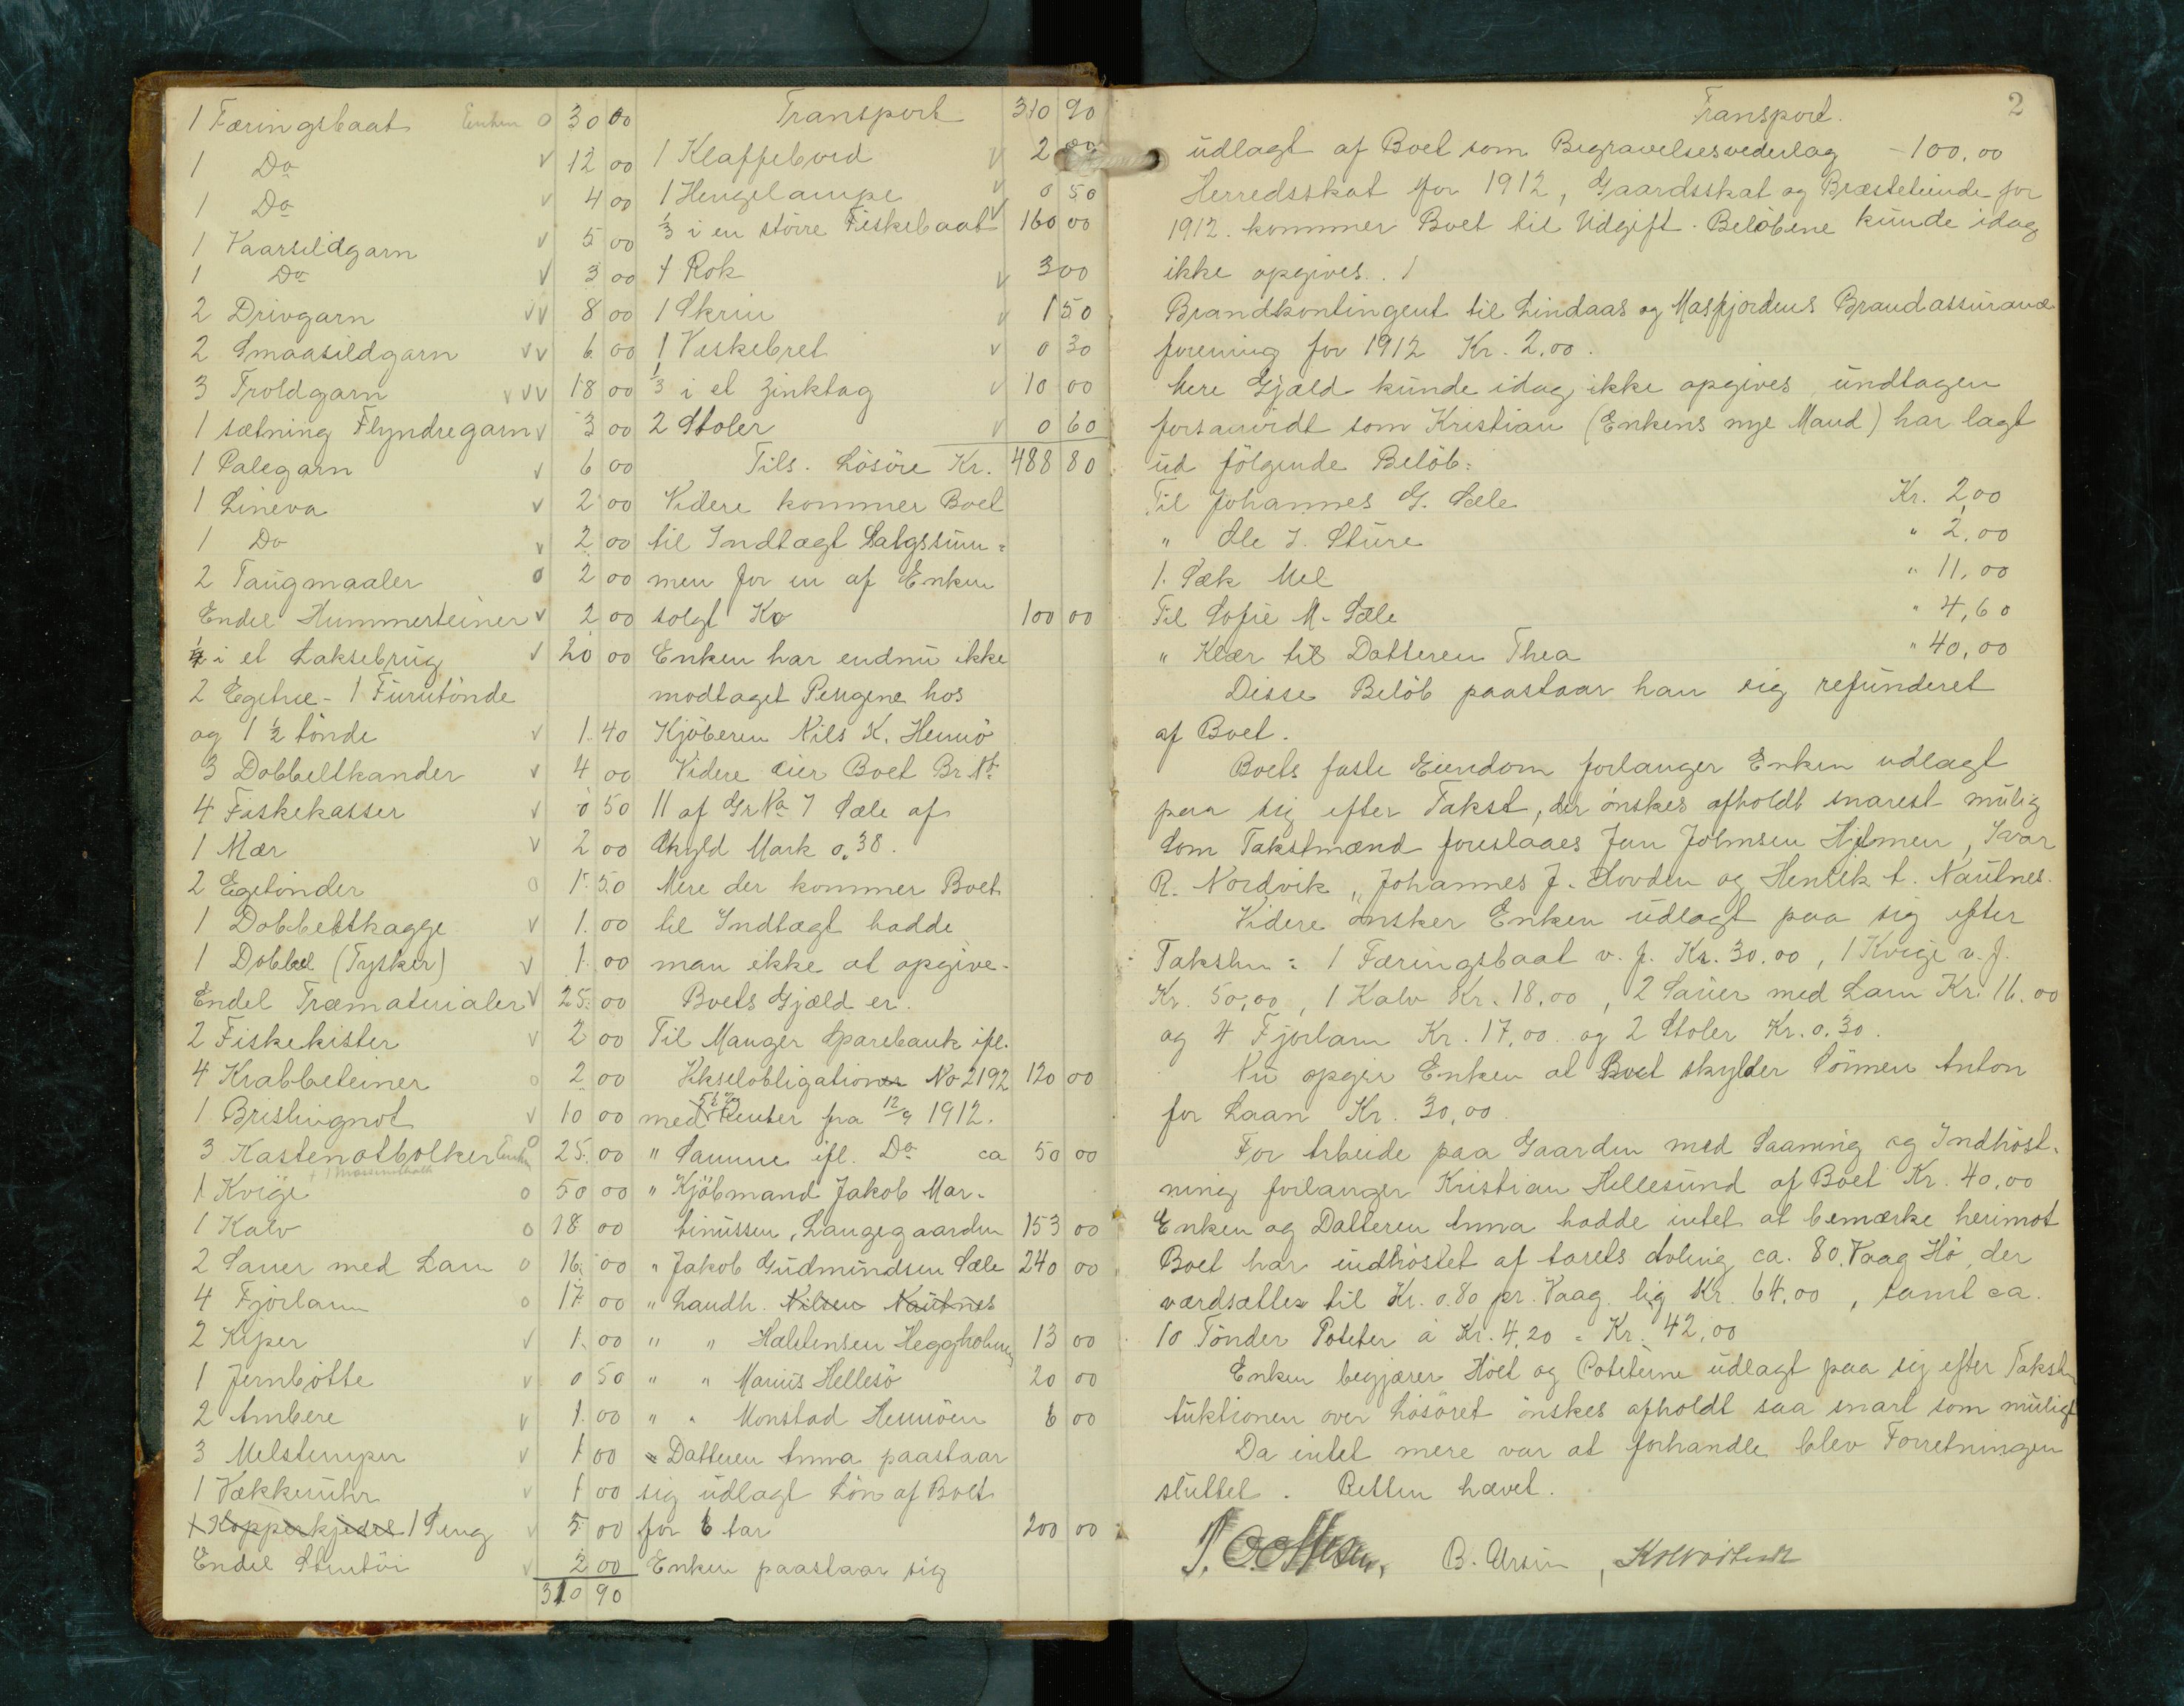 1 Færingsbaat Enken o 30 00
1 Do v 12 00
1 Do v 4 00
1 Vaarsildgarn v 5 00
1 Do v 3 00
2 Drivgarn vv 8 00
2 Smaasildgarn vv 6 00
3 Troldgarn vvv 18 00
1 sætning Flyndregarn v 3 00
1 Palegarn v 6 00
1 Lineva v 2 00
1 Do v 2 00
2 Taugmaaler o 2 00
Endel Hummerteiner v 2 00
i et Laksebrug v 20 00
2 Egetræ - 1 Furutönde
og 1 ½ tönde v 1 40
3 Dobbeltkander v 4 00
4 Fiskekasser v 0 50
1 Mær v 2 00
2 Egetönder o 1 50
1 Dobbeltkagge v 1 00
1 Dobbel (Tysker) v 1 00
Endel Træmaterialer v 25 00
2 Fiskekister v 2 00
4 Krabbeteiner o 2 00
1 Brislingnot v 10 00
3 Kastenotbolker Enken o 25 00
1 Kvige o 50 00
1 Kalv o 18 00
2 Sauer med Lam o 16 00
4 Fjorlam o 17 00
2 Kiper v 1 00
1 Jernbötte v 0 50
2 Ambere v 1 00
3 Melstamper v 1 00
1 Vækkeruhr v 1 00
1 Kopperkjedel 1 Seng v 5 00
Endel Stentöi v 2 00
310 90
Transport 310 90
1 Klaffebord v 2 00
1 Hengelampe v 0 50
⅓ i en större Fiskebaat v 160 00
1 Rok v 3 00
1 Skrin v 1 50
1 Vaskebret v 0 30
⅓ i et Zinktag v 10 00
2 Stoler v 0 60
Tils. Lösöre Kr. 488 80
Videre kommer Boet
til Indtægt Salgssum=
men for en af Enken
solgt Ko 100 00
Enken har endnu ikke
modtaget Pengene hos
Kjöberen Nils K. Hennö
Videre eier Boet Br. Nr.
11 af Gr No 7 Sæle af
Skyld Mark 0.38.
Mere der kommer Boet
til Indtægt hadde
man ikke at opgive.
Boets Gjæld er.
Til Manger Sparebank ifl.
Vekselobligation No 2192 120 00
med 5½ % Renter fra 12/9 1912.
" Samme ifl. Do ca 50 00
" Kjöbmand Jakob Mar-
tinussen, Langegaarden 153 00
" Jakob Gudmundsen Sæle 240 00
" Landh. Nilsen Nautnes
" " Halstensen Heggholmen 13 00
" " Marius Hellesö 20 00
" " Monstad Hennöen 6 00
" Datteren Anna paastaar
sig udlagt Lön af Boet
for 6 Aar 200 00
Enken paastaar sig
Transport. 2
udlagt af Boet som Begravelsesvederlag - 100.00
Herredsskat for 1912, Gaardsskat og Præstetiende for
1912. kommer Boet til Udgift. Belöbene kunde idag
ikke opgives.
Brandkontingent til Lindaas og Masfjordens Brandassurance
forening for 1912 Kr. 2.00.
Mere Gjæld kunde idag ikke opgives undtagen
forsaavidt som Kristian (Enkens nye Mand) har lagt
ud fölgende Belöb:
Til Johannes G. Sæle Kr. 2,00
" Ole J. Sture " 2,00
1. Sæk Mel " 11,00
Til Sofie M. Sæle " 4,60
" Klær til Datteren Thea " 40,00
Disse Belöb paastaar han sig refunderet
af Boet.
Boets faste Eiendom forlanger Enken udlagt
paa sig efter Takst, der önskes afholdt snarest mulig
Som Takstmænd foreslaaes Jan Johnsen Hjelmen, Ivar
R. Nordvik, Johannes J. Hovden og Henrik A. Nautnes.
Videre önsker Enken udlagt paa sig efter
Taksten: 1 Færingsbaat v. f. Kr. 30.00, 1 Kvige v. f.
Kr. 50,00, 1 Kalv Kr. 18,00, 2 Sauer med Lam Kr. 16.00
og 4 Fjorlam Kr. 17,00 og 2 Stoler Kr. 0.30.
Nu opgir Enken at Boet skylder Sönnen Anton
for Laan Kr. 30,00.
For Arbeide paa Gaarden med Saaning og Indhöst-
ning forlanger Kristian Hellesund af Boet Kr. 40,00
Enken og Datteren Anna hadde intet at bemærke herimot
Boet har indhöstet af Aarets Avling ca. 80 Vaag Hö, der
værdsættes til Kr. 0.80 pr. Vaag lig Kr. 64,00, samt ca.
10 Tönder Poteter á Kr. 4,20 = Kr. 42,00
Enken begjærer Höet og Poteterne udlagt paa sig efter Taksten
Auktionen over Lösöret önskes afholdt saa snart som muligt
Da intet mere var at forhandle blev Forretningen
sluttet. Retten hævet.
B. Ursin